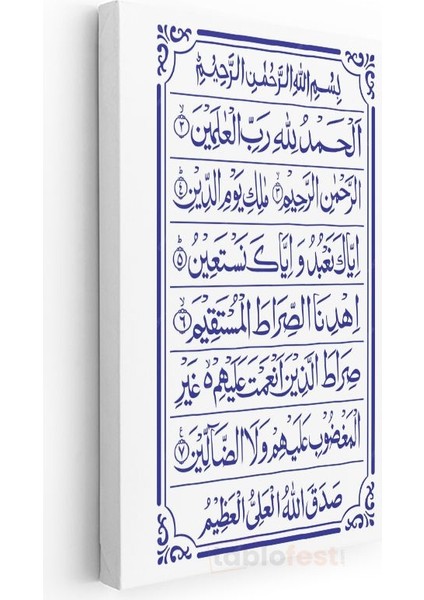 بِسْمِ اللهِ الرَّحْمٰنِ الرَّحِيْمِ
اَلْحَمْدُ لِلهِ رَبِّ الْعٰلَمِيْنَ ٢
الرَّحْمٰنِ الرَّحِيْمِ ٣ مٰلِكِ يَوْمِ الدِّيْنِ ٤
اِيَّاكَ نَعْبُدُ وَ اِيَّاكَ نَسْتَعِيْنُ ٥
اِهْدِنَا الصِّرَاطَ الْمُسْتَقِيْمَ ٦
صِرَاطَ الَّذِيْنَ اَنْعَمْتَ عَلَيْهِمْ ۵ غَيْرِ
الْمَغْضُوْبِ عَلَيْهِمْ وَلَا الضَّآلِّيْنَ ٧
صَدَقَ اللهُ الْعَلِيُّ الْعَظِيْمُ
tablofest